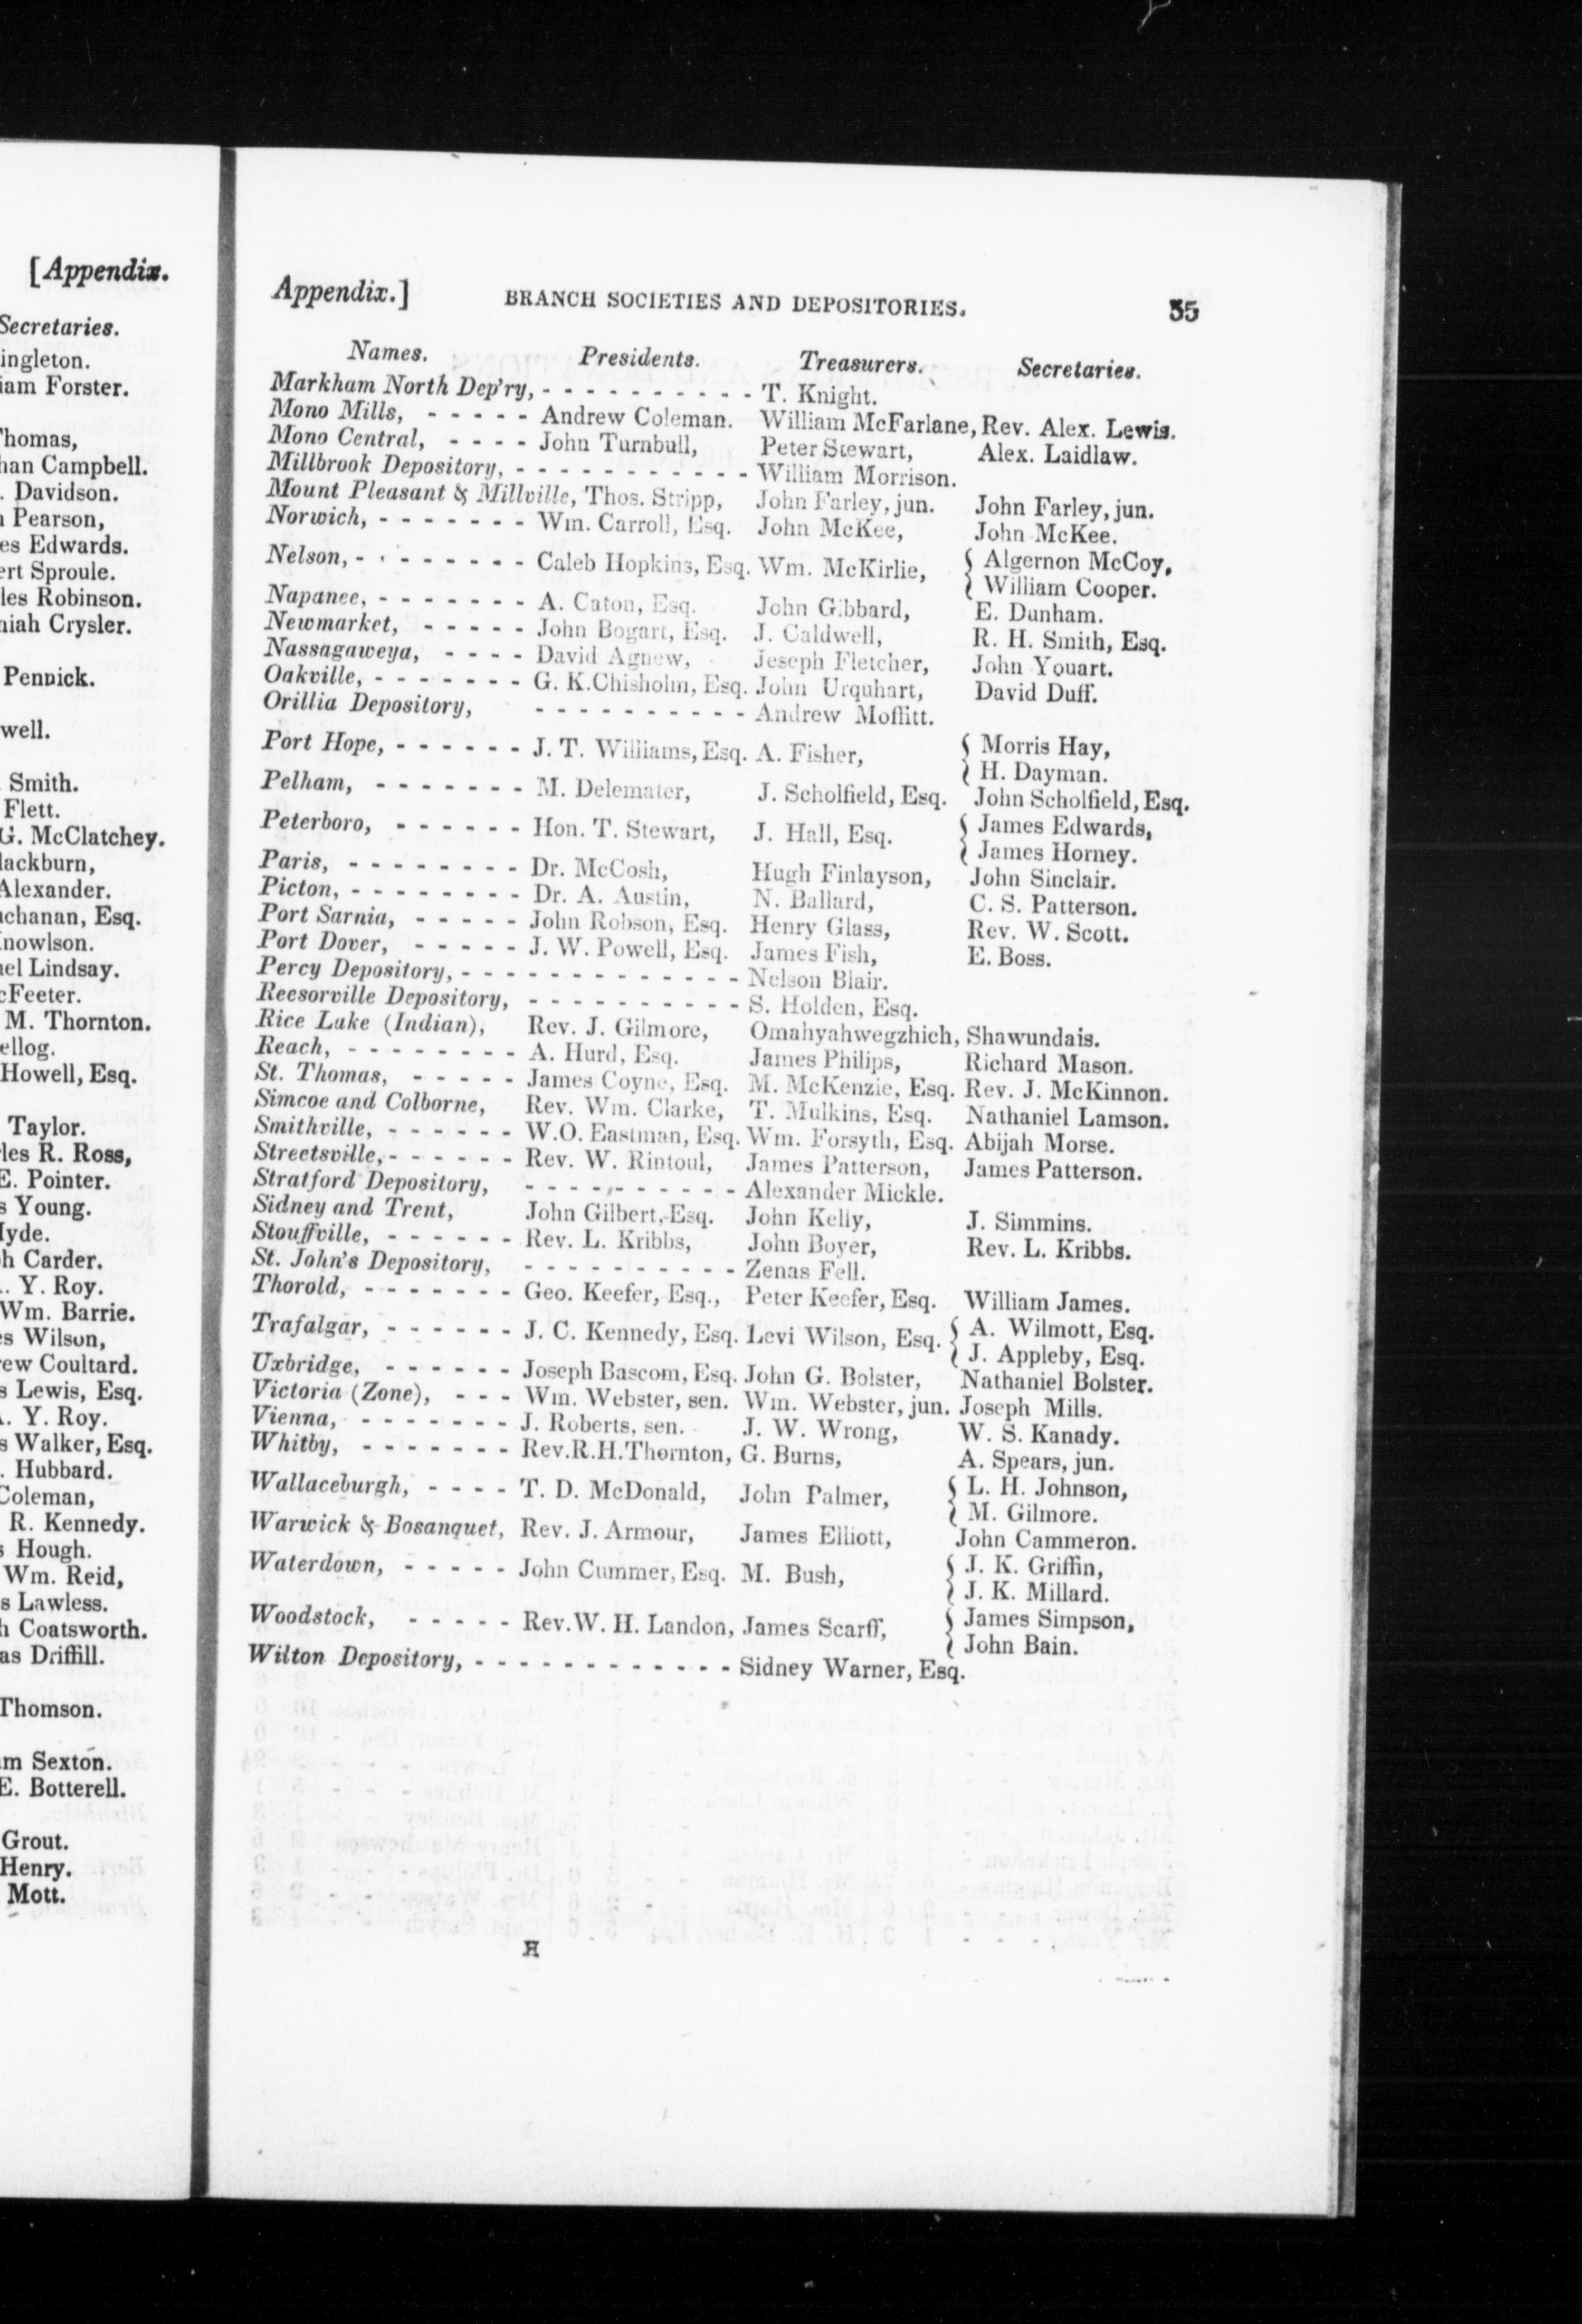 [Appendix.
Secretaries.
ingleton.
iam Forster.
homas,
han Campbell.
. Davidson.
Pearson,
es Edwards.
ert Sproule.
les Robinson.
niah Crysler.
Pennick.
well.
Smith.
Flett.
G. McClatchey.
lackburn,
Alexander.
chanan, Esq.
nowlson.
el Lindsay.
cFeeter.
M. Thornton.
ellog.
Howell, Esq.
Taylor.
les R. Ross,
E. Pointer.
s Young.
Hyde.
h Carder.
. Y. Roy.
Wm. Barrie.
es Wilson,
ew Coultard.
s Lewis, Esq.
. Y. Roy.
s Walker, Esq.
. Hubbard.
Coleman,
R. Kennedy.
s Hough.
Wm. Reid,
s Lawless.
h Coatsworth.
as Driffill.
Thomson.
m Sexton.
E. Botterell.
Grout.
Henry.
Mott.
Appendix.] BRANCH SOCIETIES AND DEPOSITORIES. 35
Names. Presidents. Treasurers. Secretaries.
Markham North Dep'ry, - - - - - - - - - - T. Knight.
Mono Mills, - - - - - Andrew Coleman. William McFarlane, Rev. Alex. Lewis.
Mono Central, - - - - John Turnbull, Peter Stewart, Alex. Laidlaw.
Millbrook Depository, - - - - - - - - - - - William Morrison.
Mount Pleasant & Millville, Thos. Stripp, John Farley, jun. John Farley, jun.
Norwich, - - - - - - - Wm. Carroll, Esq. John McKee, John McKee.
Nelson, - - - - - - - - Caleb Hopkins, Esq. Wm. McKirlie, { Algernon McCoy,
{ William Cooper.
Napanee, - - - - - - - A. Caton, Esq. John Gibbard, E. Dunham.
Newmarket, - - - - - John Bogart, Esq. J. Caldwell, R. H. Smith, Esq.
Nassagaweya, - - - - David Agnew, Jeseph Fletcher, John Youart.
Oakville, - - - - - - - G. K. Chisholm, Esq. John Urquhart, David Duff.
Orillia Depository, - - - - - - - - - - Andrew Moffitt.
Port Hope, - - - - - - J. T. Williams, Esq. A. Fisher, { Morris Hay,
{ H. Dayman.
Pelham, - - - - - - - M. Delemater, J. Scholfield, Esq. John Scholfield, Esq.
Peterboro, - - - - - - Hon. T. Stewart, J. Hall, Esq. { James Edwards,
{ James Horney.
Paris, - - - - - - - - Dr. McCosh, Hugh Finlayson, John Sinclair.
Picton, - - - - - - - - Dr. A. Austin, N. Ballard, C. S. Patterson.
Port Sarnia, - - - - - John Robson, Esq. Henry Glass, Rev. W. Scott.
Port Dover, - - - - - J. W. Powell, Esq. James Fish, E. Boss.
Percy Depository, - - - - - - - - - - - - - Nelson Blair.
Reesorville Depository, - - - - - - - - - - S. Holden, Esq.
Rice Lake (Indian), Rev. J. Gilmore, Omahyahwegzhich, Shawundais.
Reach, - - - - - - - - A. Hurd, Esq. James Philips, Richard Mason.
St. Thomas, - - - - - James Coyne, Esq. M. McKenzie, Esq. Rev. J. McKinnon.
Simcoe and Colborne, Rev. Wm. Clarke, T. Mulkins, Esq. Nathaniel Lamson.
Smithville, - - - - - - W.O. Eastman, Esq. Wm. Forsyth, Esq. Abijah Morse.
Streetsville, - - - - - - Rev. W. Rintoul, James Patterson, James Patterson.
Stratford Depository, - - - - - - - - - - Alexander Mickle.
Sidney and Trent, John Gilbert, Esq. John Kelly, J. Simmins.
Stouffville, - - - - - - Rev. L. Kribbs, John Boyer, Rev. L. Kribbs.
St. John's Depository, - - - - - - - - - - Zenas Fell.
Thorold, - - - - - - - Geo. Keefer, Esq., Peter Keefer, Esq. William James.
Trafalgar, - - - - - - J. C. Kennedy, Esq. Levi Wilson, Esq. { A. Wilmott, Esq.
{ J. Appleby, Esq.
Uxbridge, - - - - - - Joseph Bascom, Esq. John G. Bolster, Nathaniel Bolster.
Victoria (Zone), - - - Wm. Webster, sen. Wm. Webster, jun. Joseph Mills.
Vienna, - - - - - - - J. Roberts, sen. J. W. Wrong, W. S. Kanady.
Whitby, - - - - - - - Rev.R.H.Thornton, G. Burns, A. Spears, jun.
Wallaceburgh, - - - - T. D. McDonald, John Palmer, { L. H. Johnson,
{ M. Gilmore.
Warwick & Bosanquet, Rev. J. Armour, James Elliott, John Cammeron.
Waterdown, - - - - - John Cummer, Esq. M. Bush, { J. K. Griffin,
{ J. K. Millard.
Woodstock, - - - - - Rev.W. H. Landon, James Scarff, { James Simpson,
{ John Bain.
Wilton Depository, - - - - - - - - - - - - Sidney Warner, Esq.
H